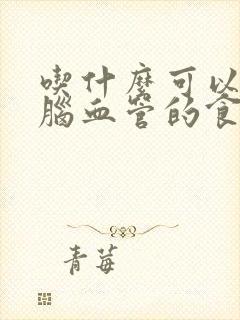 喫什麼可以
腦血管的食
青莓